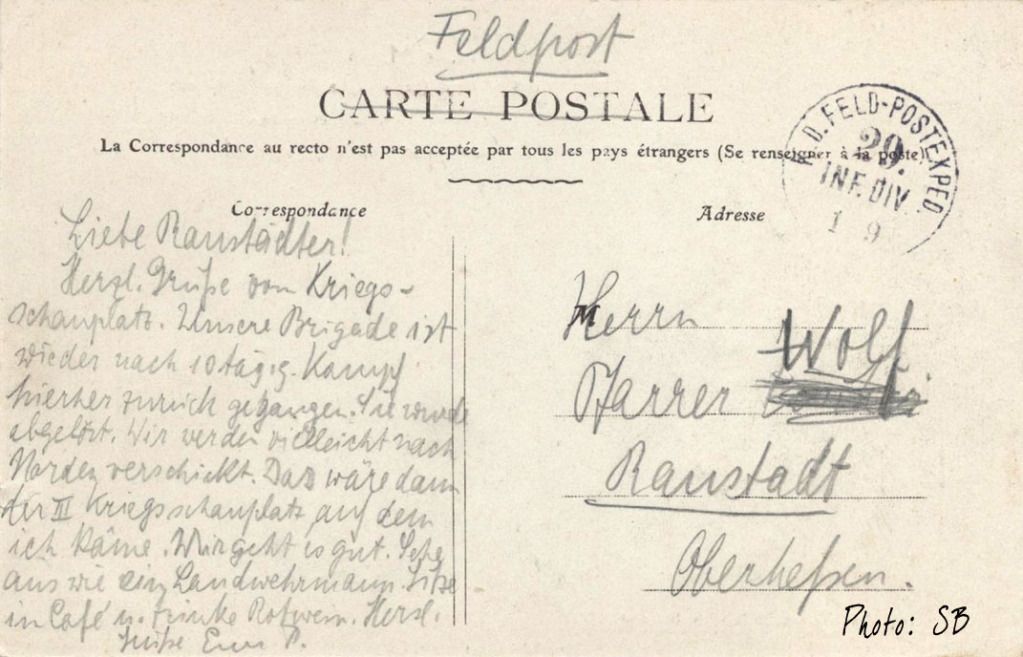 Feldpost
CARTE POSTALE
La Correspondance au recto n'est pas acceptée par tous les pays étrangers (Se renseigner à la poste)
K. D. FELD-POSTEXPED
29.
INF. DIV.
1 9
Correspondance
Adresse
Liebe Ranstädter!
Herzl. Grüße vom Kriegs-
schauplatz. Unsere Brigade ist
wieder nach 10 tägig. Kampf
hierher zurück gegangen. Sie wurde
abgelöst. Wir werden vielleicht nach
Norden verschickt. Das wäre dann
der III Kriegsschauplatz auf dem
ich käme. Mir geht es gut. Sehe
aus wie ein Landwehrmann. Sitze
in Café u. trinke Rotwein. Herzl.
Grüße Euer P.
Herrn
Wolf
Pfarrer
Ranstadt
Oberheßen.
Photo: SB